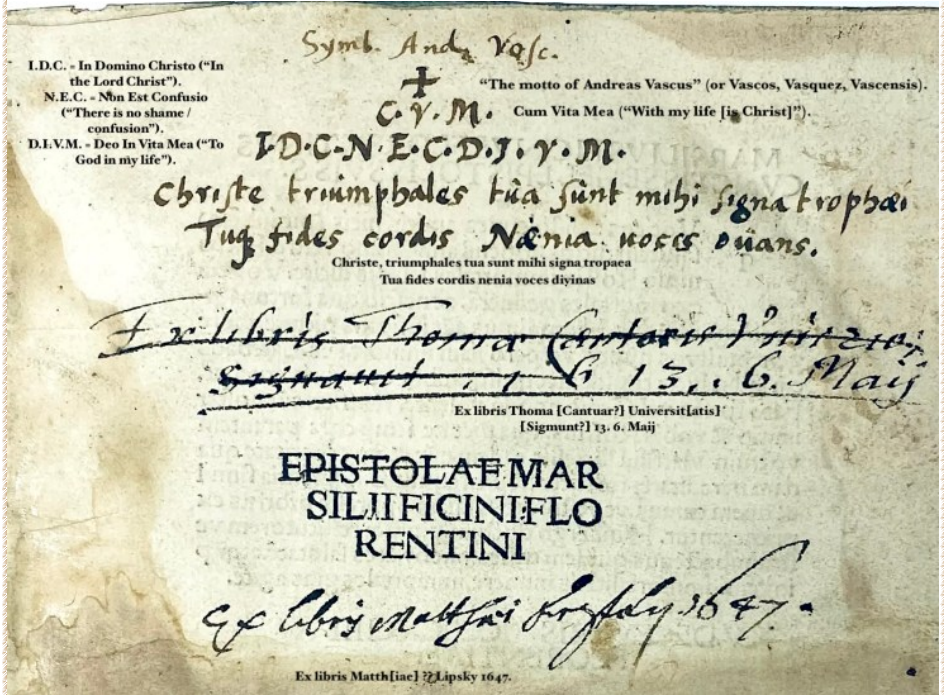 Symb. And. Vasc.
I.D.C. = In Domino Christo (“In
the Lord Christ”).
N.E.C. = Non Est Confusio
(“There is no shame /
confusion”).
D.I.V.M. = Deo In Vita Mea (“To
God in my life”).
“The motto of Andreas Vascus” (or Vascos, Vasquez, Vascensis).
C. V. M.
Cum Vita Mea (“With my life [is Christ]”).
I.D.C.N.E.C.D.I.V.M.
Christe triumphales tua sunt mihi signa trophæi
fides cordis Nænia uoces ouans.
Christe, triumphales tua sunt mihi signa tropaea
Tua fides cordis nenia voces divinas
Ex libris Thoma Cantoris
1613. 6. Maij
Ex libris Thoma [Cantuar?] Universit[atis]
[Sigmunt?] 13. 6. Maij
EPISTOLAE MAR
SILII FICINI FLO
RENTINI
Ex libris Matthæi 1647.
Ex libris Matth[iae] ?? Lipsky 1647.